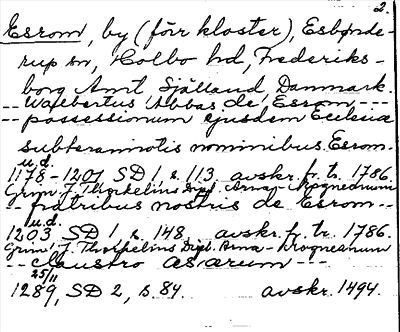 2.
Esrom, by (förr kloster), Esbønde-
rup sn, Holbo hd, Frederiks-
borg Amt Sjålland, Danmark.
-- Walbertus Abbas de Esrom ---
-- possessionum ejusdem Ecclesiæ
subterannotis nominibus. Esrom.
u.d.
1178-1201 SD 1, s. 113. avskr. fr. tr. 1786.
Grim J. Thorkelins Dipl. Arna-Magneanum
-- fratribus nostris de Esrom --
u.d.
1203 SD 1, s. 148, avskr. fr. tr. 1786.
Grim J. Thorkelins Dipl. Arna-Magneanum
-- claustro Esrom ---
25/11
1289, SD 2, s. 84. avskr. 1494.